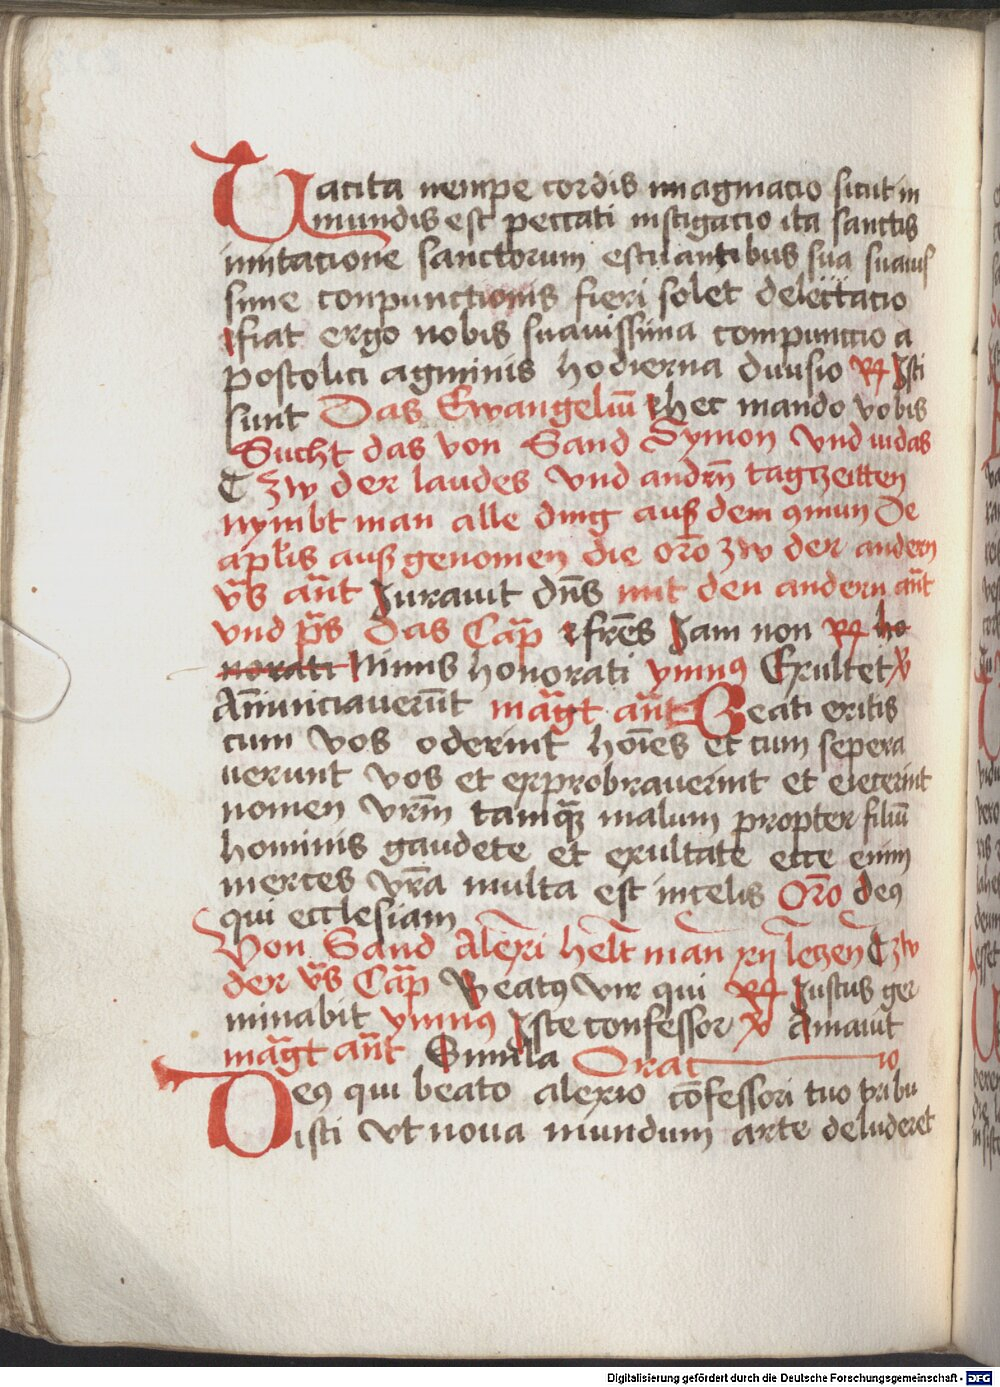 Uacita nempe cordis ymaginacio sicut in
mundis est peccati instigacio ita sanctis
imitacione sanctorum estuantibus sua suauis
sime conpunctionis fieri solet delectacio
fiat ergo nobis suauissima compunctio a
postolici agminis hodierna diuisio R Isti
sunt Das Ewangeliū hec mando vobis
Sucht das von Sand Symon vnd iudas
C Zw der laudes vnd andrn̄ tagzeitten
nymbt man alle ding aus dem 9mun De
apl̄is ausgenomen die orō zw der andern
v̄s an̄t Jurauit dn̄s mit den andern an̄t
vnd p̄s Das Cap̄ frēs Jam non R ho
norati Nimis honorati ymn9 Exultet v
Annunciauerūt maḡt an̄t Beati eritis
cum vos oderint hoīes et cum sepera
uerunt vos et exprobrauerint et eiecerint
nomen vrm̄ tamq̄ malum propter filiū
hominis gaudete et exultate ecce enim
merces vr̄a multa est in celis Orō de9
qui ecclesiam
Von Sand Alexi helt man xij leczen C zw
der v̄s Cap̄ Beat9 vir qui R Justus ger
minabit ymn9 Iste confessor v Amauit
maḡt an̄t Simila Oracio
De9 qui beato alexio cōfessori tuo tribu
isti vt noua mundum arte deluderet
Digitalisierung gefördert durch die Deutsche Forschungsgemeinschaft - DFG